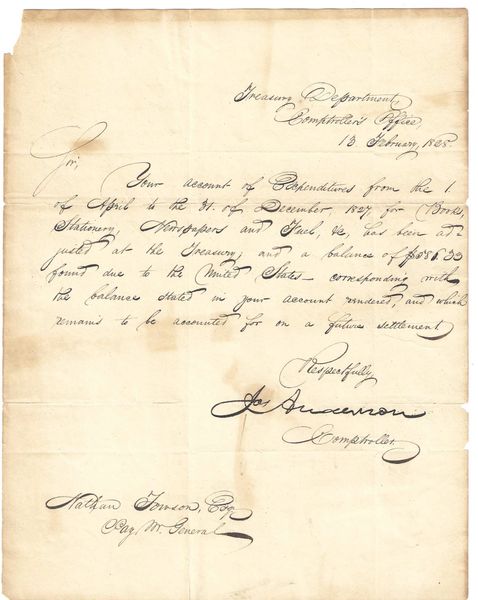 Treasury Department,
Comptroller's Office
13 February, 1828.
Sir,
Your account of Expenditures from the 1.
of April to the 31. of December, 1827, for Books,
Stationery, Newspapers and Fuel, &c, has been ad-
justed at the Treasury; and a balance of
found due to the United States— corresponding with
the balance stated in your account rendered, and which
remains to be accounted for on a future settlement
Respectfully,
Jos Anderson
Comptroller.
Nathan Towson, Esq
Pay Mr. General